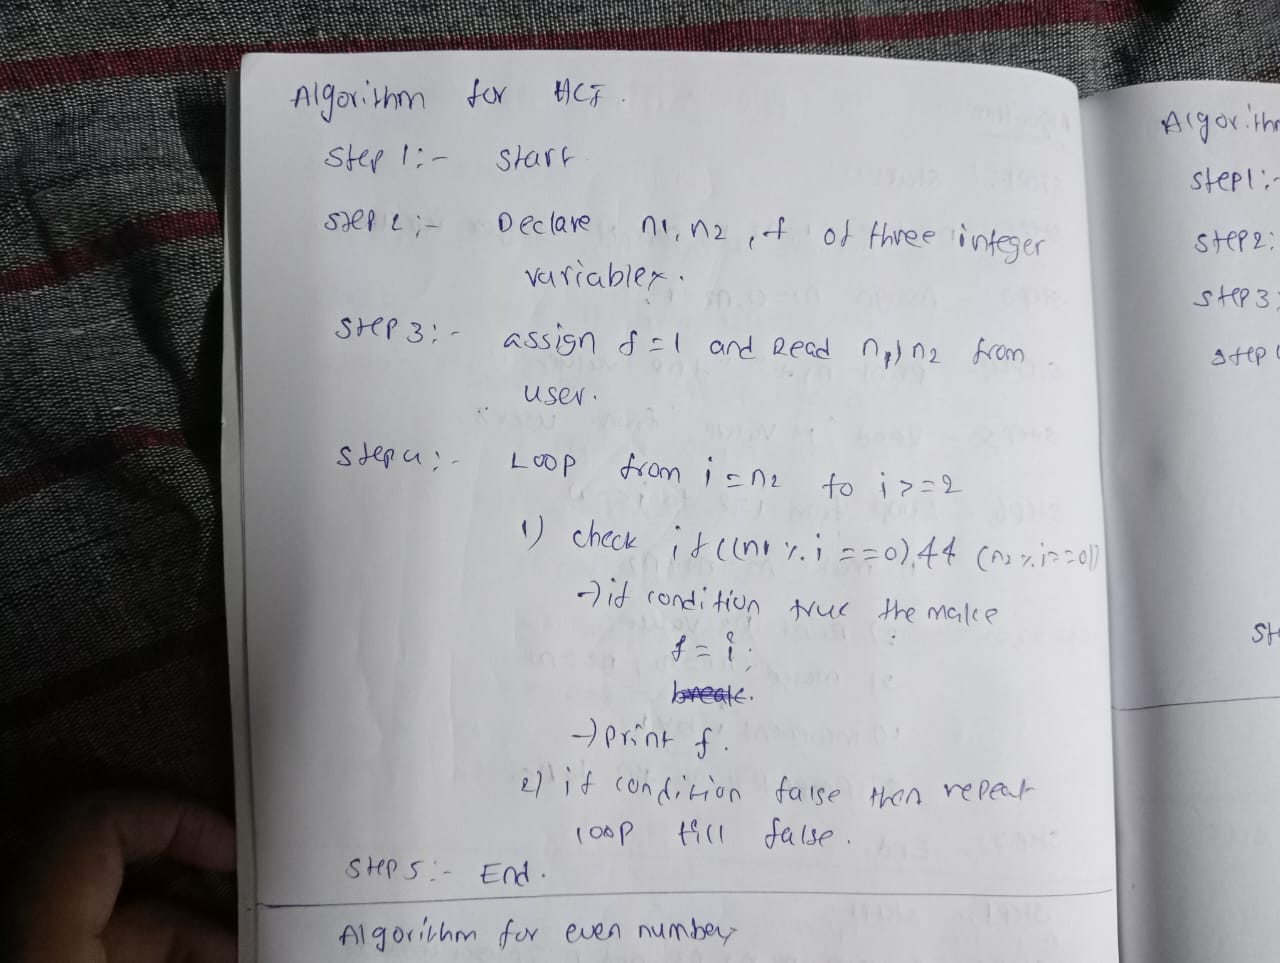 Algorithm for HCF.
Step 1:- Start
Step 2:- Declare n1, n2, f of three integer
variables.
Step 3:- assign f=1 and Read n1, n2 from
user.
Step 4:- Loop from i=n2 to i>=2
1) check if((n1 % i ==0) && (n2 % i==0))
→ if condition true the make
f = i;
break.
→ Print f.
2) if condition false then repeat
loop till false.
Step 5:- End.
Algorithm for even number
Algorithm
Step1:-
Step2:
Step3:
Step
Ste